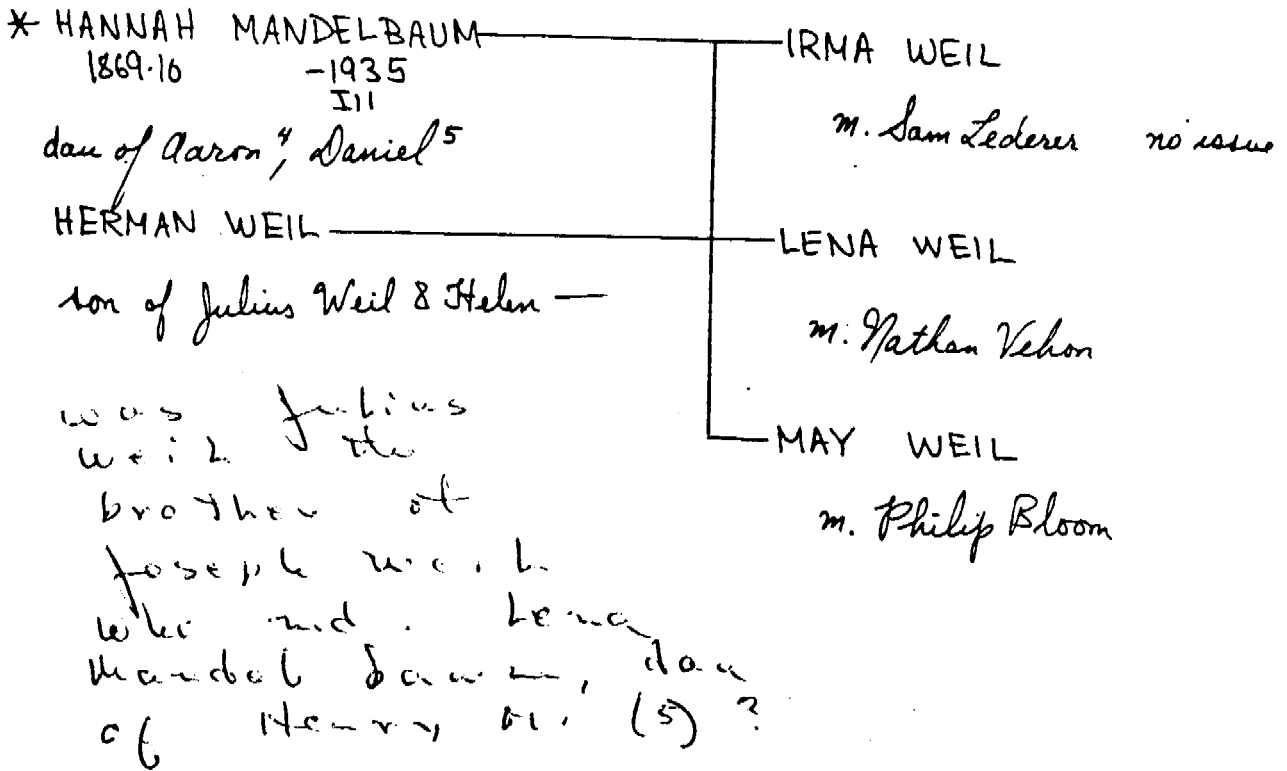 * HANNAH MANDELBAUM
1869.10 -1935
Ill
dau of Aaron⁴, Daniel⁵
HERMAN WEIL
son of Julius Weil & Helen —
was Julius
Weil the
brother of
Joseph Weil
who md. Lena
Mandelbaum, dau
of Henry M. (5) ?
IRMA WEIL
m. Sam Lederer no issue
LENA WEIL
m. Nathan Vehon
MAY WEIL
m. Philip Bloom